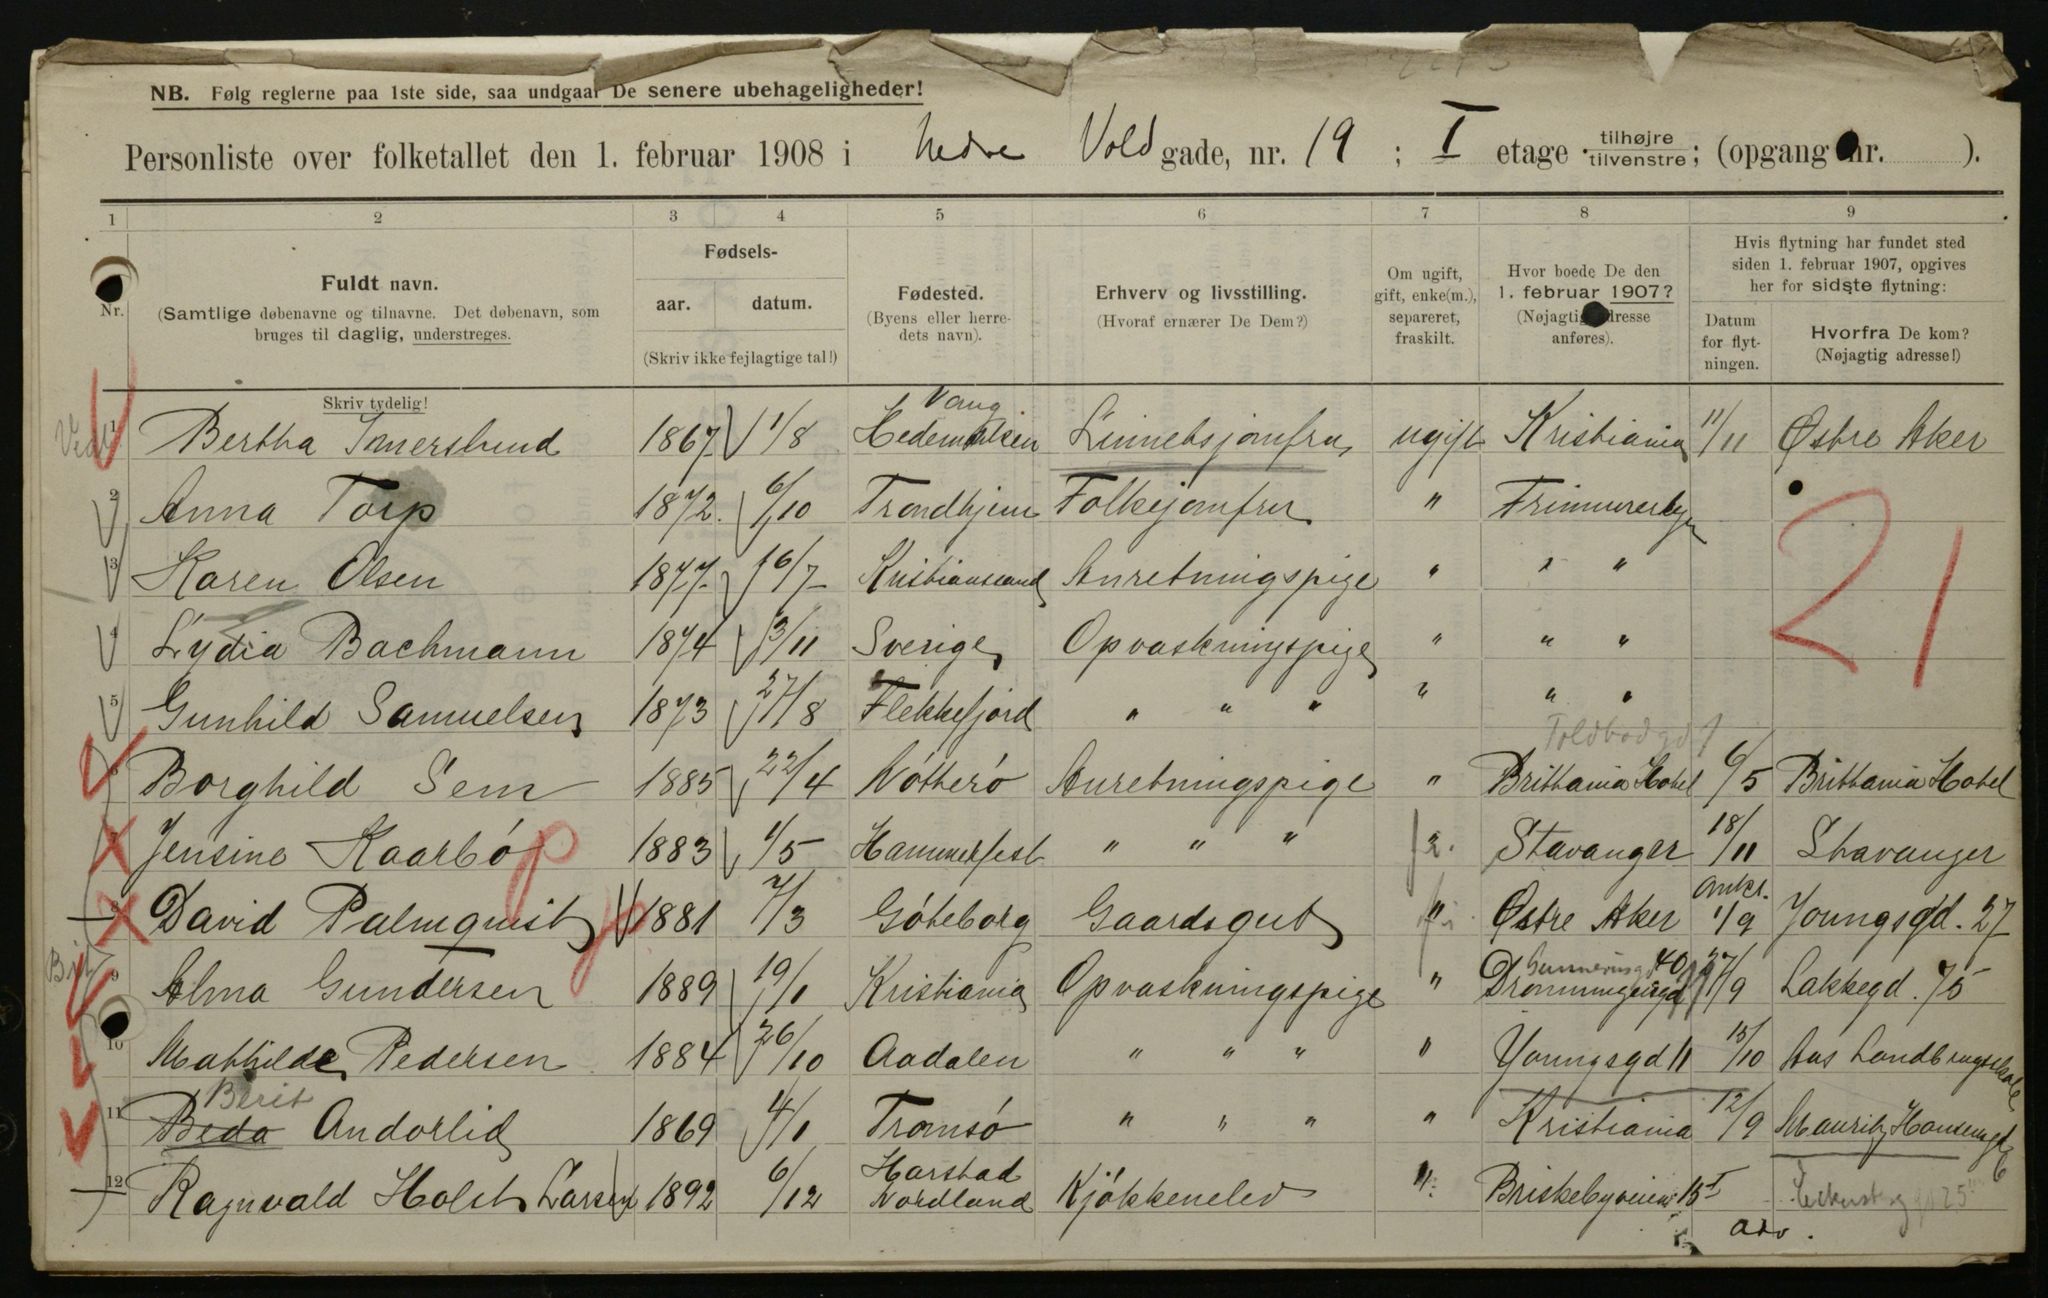 NB. Følg reglerne paa 1ste side, saa undgaar De senere ubehageligheder!
Personliste over folketallet den 1. februar 1908 i Nedre Vold gade, nr. 19 ; I etage tilhøjre tilvenstre; (opgang nr. ).
1 2 3 4 5 6 7 8 9
Nr.
Fuldt navn.
(Samtlige døbenavne og tilnavne. Det døbenavn, som
bruges til daglig, understreges.
Skriv tydelig!
Fødsels-
aar. datum.
(Skriv ikke fejlagtige tal!)
Fødested.
(Byens eller herre-
dets navn).
Erhverv og livsstilling.
(Hvoraf ernærer De Dem?)
Om ugift,
gift, enke(m.),
separeret,
fraskilt.
Hvor boede De den
1. februar 1907?
(Nøjagtig adresse
anføres).
Hvis flytning har fundet sted
siden 1. februar 1907, opgives
her for sidste flytning:
Datum
for flyt-
ningen.
Hvorfra De kom?
(Nøjagtig adresse!)
Vang
1 Bertha Imerslund 1867 1/8 Hedemarken Linnetsjomfru ugift Kristiania 11/11 Østre Aker
2 Anna Torp 1872. 6/10 Trondhjem Folkejomfru " Frimurerby
3 Karen Olsen 1877 16/7 Kristianssand Anretningspige " " "
21
4 Lydia Bachmann 1874 3/11 Sverige Opvaskningspige " " "
5 Gunhild Samuelsen 1873 27/8 Flekkefjord " " " " " "
Toldbodgd 7
6 Borghild Sem 1885 22/4 Nötterö Anretningspige " Brittania Hotel 6/5 Brittania Hotel
7 Jensine Kaarbö 1883 1/5 Hammerfest " " " Stavanger 18/11 Stavanger
8 David Palmquist 1881 7/3 Göteborg Gaardsgut " Østre Aker 1/9 Youngsgd. 27
40
9 Alma Gundersen 1889 19/1 Kristiania Opvaskningspige " Dronningensgd 27/9 Lakkegd. 75
10 Mathilde Pedersen 1884 26/10 Aadalen " " " " Youngsgd 11 15/10 Aas Landbrugsskole
Berit
11 Beda Andorlid 1869 4/1 Tromsö " " " " Kristiania 12/9 Mauritz Hansensgd 6
12 Ragnvald Holst Larsen 1892 6/12 Harstad Nordland Kjökkenelev " Briskebyveien 15 I